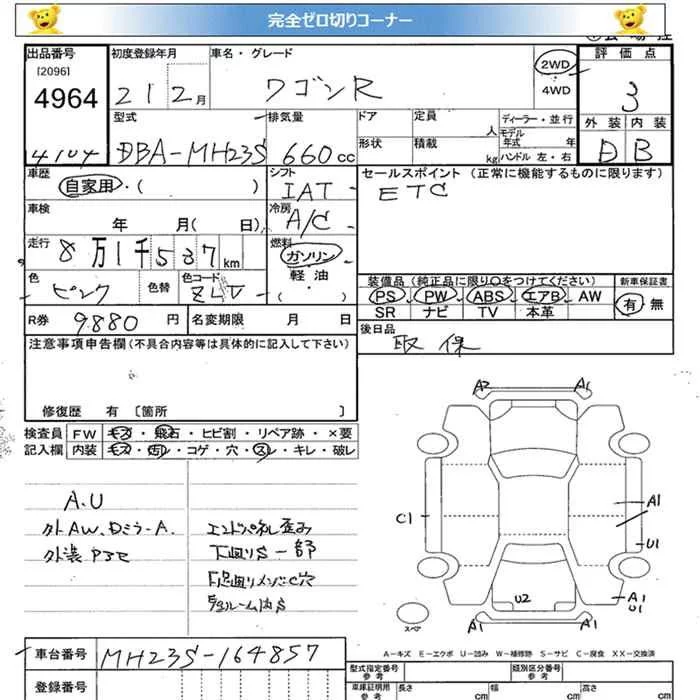 完全ゼロ切りコーナー
出品番号 初度登録年月 車名・グレード 評価点
[2096]
4964 21 2月 ワゴンR 2WD 3
4WD
型式 排気量 ドア 定員 人 ディーラー・並行 外装 内装
モデル年式 年
4104 DBA-MH23S 660cc 形状 積載 kg ハンドル 左・右 D B
車歴 シフト セールスポイント (正常に機能するものに限ります)
自家用・( ) IAT ETC
車検 冷房
年 月( 日) A/C
走行 燃料
8万1千537km ガソリン
軽油
・
色 色替 色コード ( ) 装備品 (純正品に限り○をつけてください) 新車保証書
ピンク ZLV PS PW ABS エアB AW 有 無
SR ナビ TV 本革
R券 9.880 円 名変期限 月 日 後日品
注意事項申告欄(不具合内容等は具体的に記入して下さい) 取 保
修復歴 有 [箇所 ]
検査員 FW キズ・飛石・ヒビ割・リペア跡・×要
記入欄 内装 キズ・汚れ・コゲ・穴・スレ・キレ・破レ
A2 A1
A1
C1
U1
A.U
外AW、Dミラー A. エンドパネル歪み
外装 下廻りS一部
U2 A1
U1
A1 A1
スペア
A-キズ E-エクボ U-凹み W-補修跡 S-サビ C-腐食 XX-交換済
車台番号 MH23S-164857
登録番号
型式指定番号 参考 類別区分番号 参考
車庫証明用 参考 長さ cm 幅 cm 高さ cm